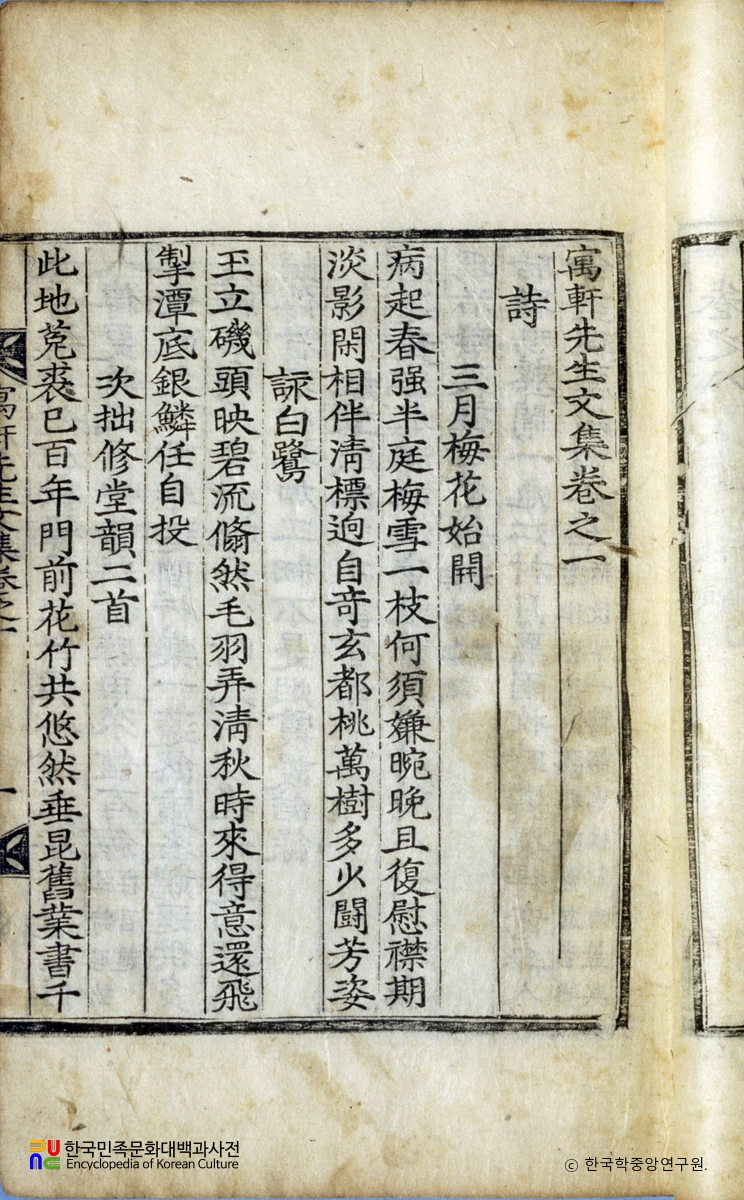 寓軒先生文集卷之一
詩
三月梅花始開
病起春强半庭梅雪一枝何須嫌晼晚且復慰襟期
淡影閑相伴淸標逈自奇玄都桃萬樹多少鬪芳姿
詠白鷺
玉立磯頭映碧流翛然毛羽弄淸秋時來得意還飛
掣潭底銀鱗任自投
次拙修堂韻二首
此地菟裘已百年門前花竹共悠然垂昆舊業書千
寓軒先生文集卷之一
一
한국민족문화대백과사전
Encyclopedia of Korean Culture
© 한국학중앙연구원.